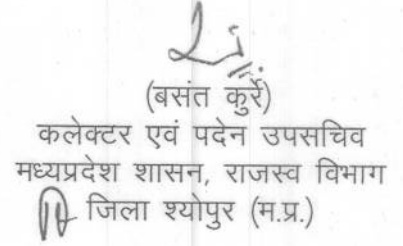 (बसंत कुर्रे)
कलेक्टर एवं पदेन उपसचिव
मध्यप्रदेश शासन, राजस्व विभाग
जिला श्योपुर (म.प्र.)